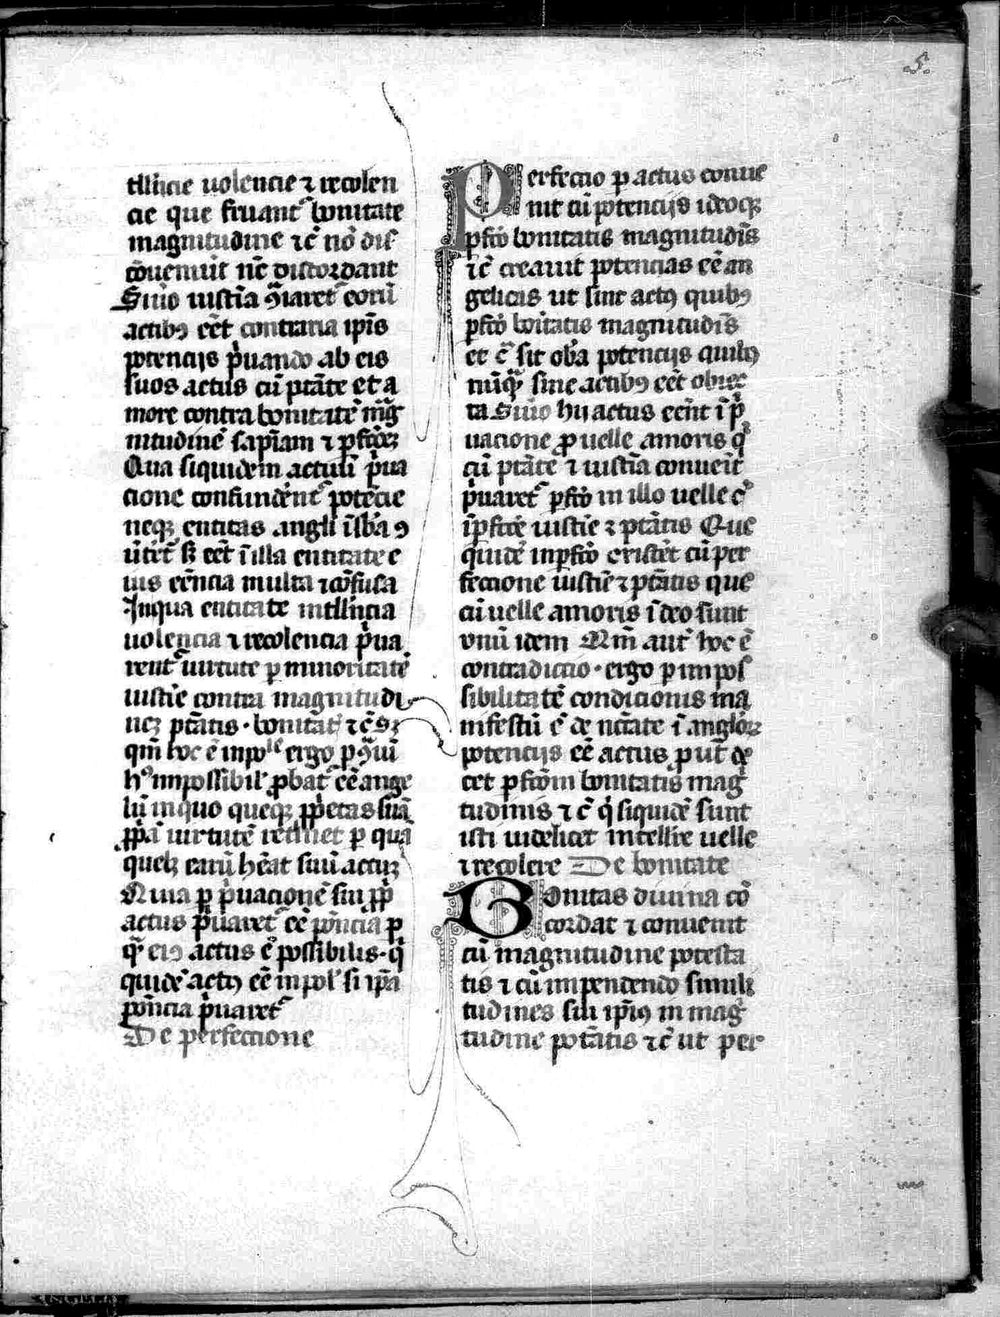 5
tłłı̅cie uolencie ⁊ recolen
cie que fruant᷑ bonitate
magnitudine ⁊c̅ no̅ dis
co̅ueniu̅t ne̅ discordant
Siu̅o iusti̅a p̱iuaret᷑ eoru̅
actib⁹ ee̅t contraria ip̅is
potencijs p̍uando ab eis
suos actus cu̅ p̱ta̅te et a
more contra bonitate̅ mag̅
nitudine̅ sapi̅am ⁊
Qua siquidem actuu̅ p̍ua
cione confunde̅nt᷑ pote̅cie
neqꝫ entitas angli
ee̅t i̅ illa entitate e
ius ee̅ncia multa ⁊ co̅fusa
Inqua entitate intłłi̅ncia
uolencia ⁊ recolencia p̍ua
rent᷑ uirtute ꝑ minoritate̅
iusti̅e contra magnitudi
neꝫ p̱ta̅tis · bonitat̅ ⁊c̅
qm̅ hoc e̅ inpo̅le ergo ꝑ
impossibile ꝓbat᷑ ee̅ ange
lu̅ inquo queqꝫ ꝓp̍etas sua̅
ꝓp̍a̅ uirtute̅ retinet ꝑ qua̅
quelꝫ earu̅ he̅at suu̅ actuꝫ
Quia ꝑ p̍uacione̅ sui ꝓp̍
actus p̍uaret᷑ ee̅ po̅ncia ꝑ
q̅ ei⁹ actus e̅ possibilis · q̍
quide̅ act⁹ ee̅ inpol̅ si ip̅a
po̅ncia p̍uaret᷑
De perfectione
Perfectio ꝑ actus conue
nit cu̅ potencijs ideoqꝫ
ꝑfc̅o bonitatis magnitudi̅s
⁊c̅ creauit potencias ee̅ an
gelicas ut sint act⁹ quib⁹
ꝑfc̅o bo̅itatis magnitudi̅s
et c̅ sit ob̅a potencijs quib⁹
nu̅q̅ sine actib⁹ ee̅t obiec
ta Siu̅o hij actus ee̅nt i̅ p̍
uacione ꝓ uelle amoris q̍
cu̅ p̱ta̅te ⁊ iusti̅a conueit̅
p̍uaret᷑ ꝑfc̅o in illo uelle c̅
i̅ꝑfc̅e iusti̅e ⁊ p̱ta̅tis Que
quide̅ inꝑfc̅o existe̅t cu̅ per
fectione iusti̅e ⁊ p̱ta̅tis que
cu̅ uelle amoris i̅ deo sunt
vnu̅ idem Nm̅ aut̅ hoc e̅
contradictio · ergo ꝑ impos
sibilitate̅ condicionis ma
nifestu̅ e̅ de n̅itate i̅ angloꝝ
potencijs ee̅ actus ꝓut de
cet ꝑfc̅om bonitatis mag
tudinis ⁊ c̅ q̍ siquide̅ sunt
isti uidelicet intellre̅ uelle
⁊ recolere De bonitate
Bonitas diuina co̅
cordat ⁊ conuenit
cu̅ magnitudine potesta
tis ⁊ cu̅ inpendendo simili
tudines sui ip̅i⁹ in mag
tudine pota̅tis ⁊c̅ ut per